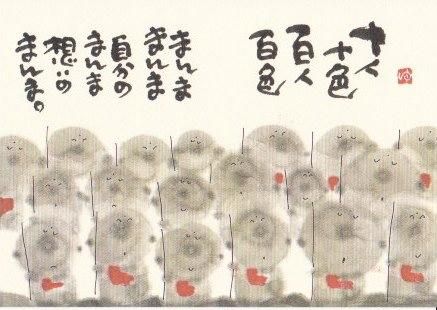 十人
十色
百人
百色
まんま
まんま
自分の
まんま
想いの
まんま。